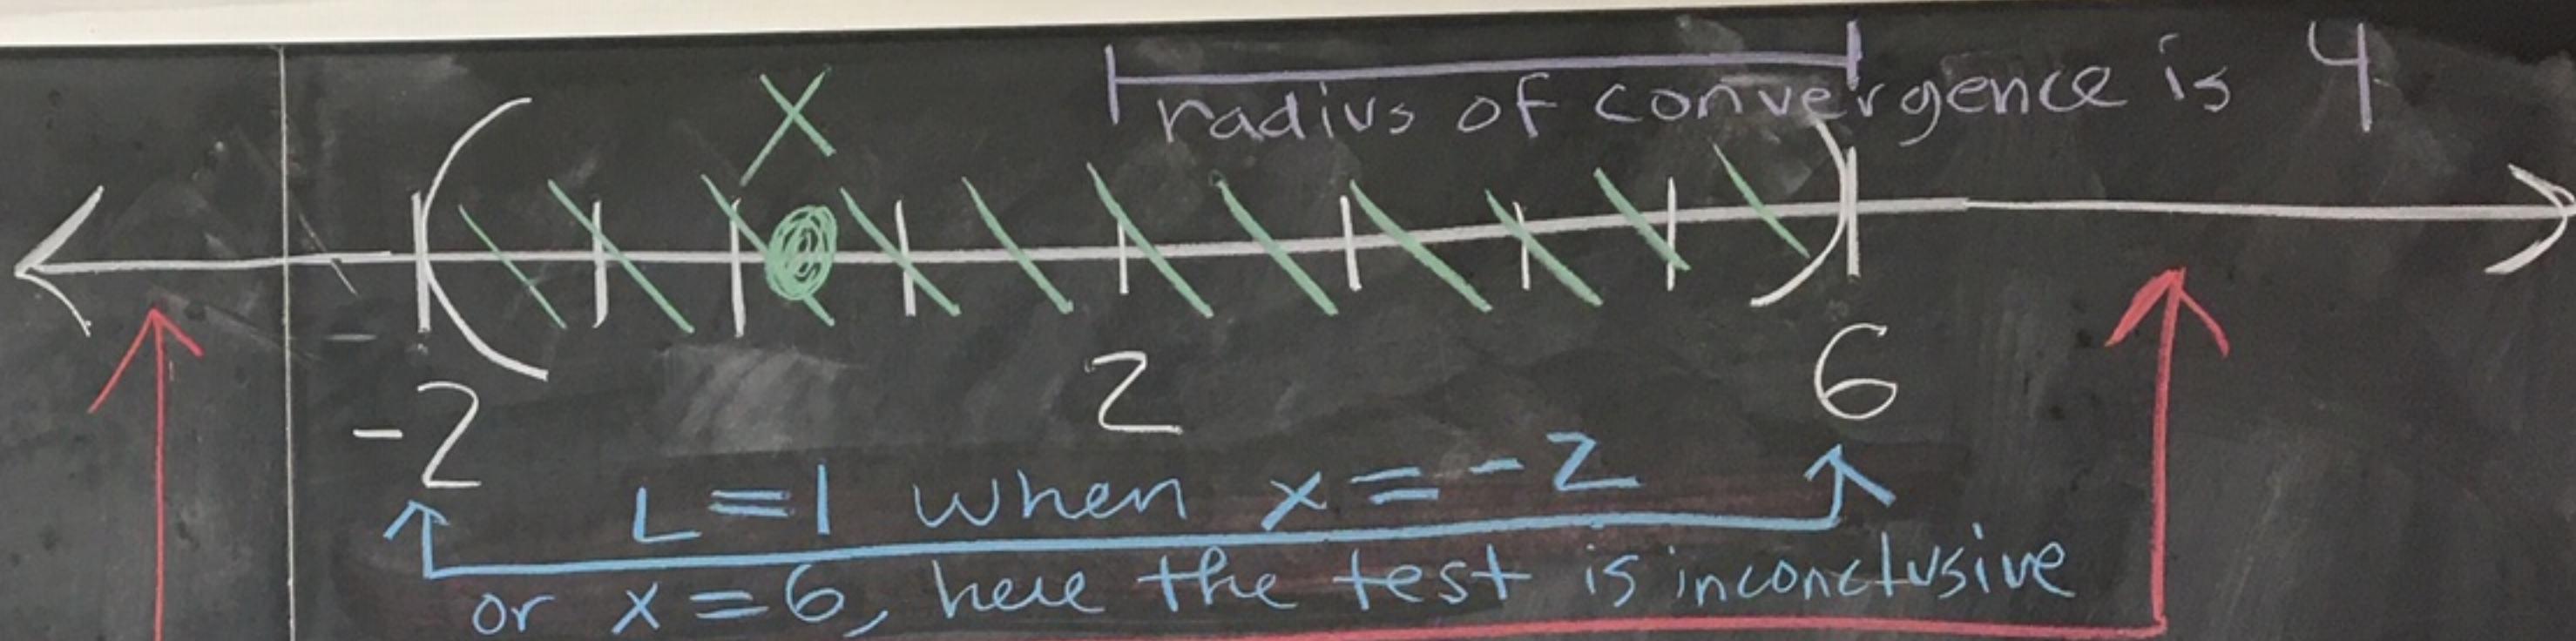 radius of convergence is 4
X
-2 2 6
L=1 when x=-2
or x=6, here the test is inconclusive